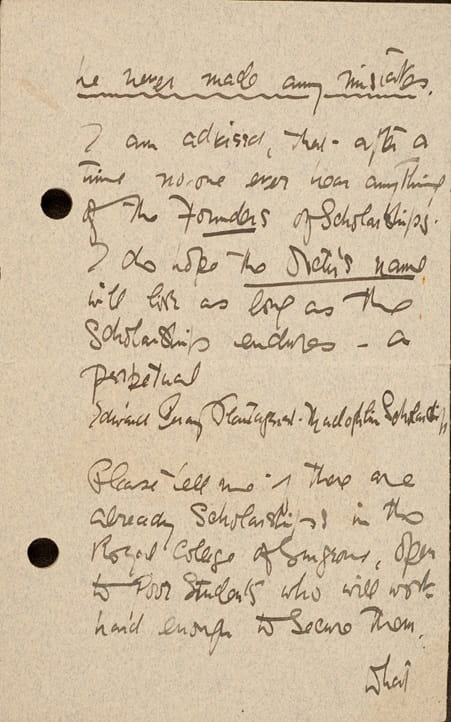 he never made any mistakes.
I am advised, that - after a
time no-one ever hear anything
of the Founders of Scholarships.
I do hope the Doctor's name
will live as long as the
Scholarship endures - a
perpetual
Edward Percy Plantagenet - Scholarship
Please tell me if there are
already Scholarships in the
Royal College of Surgeons, open
to Poor Students who will work
hard enough to secure them.
What